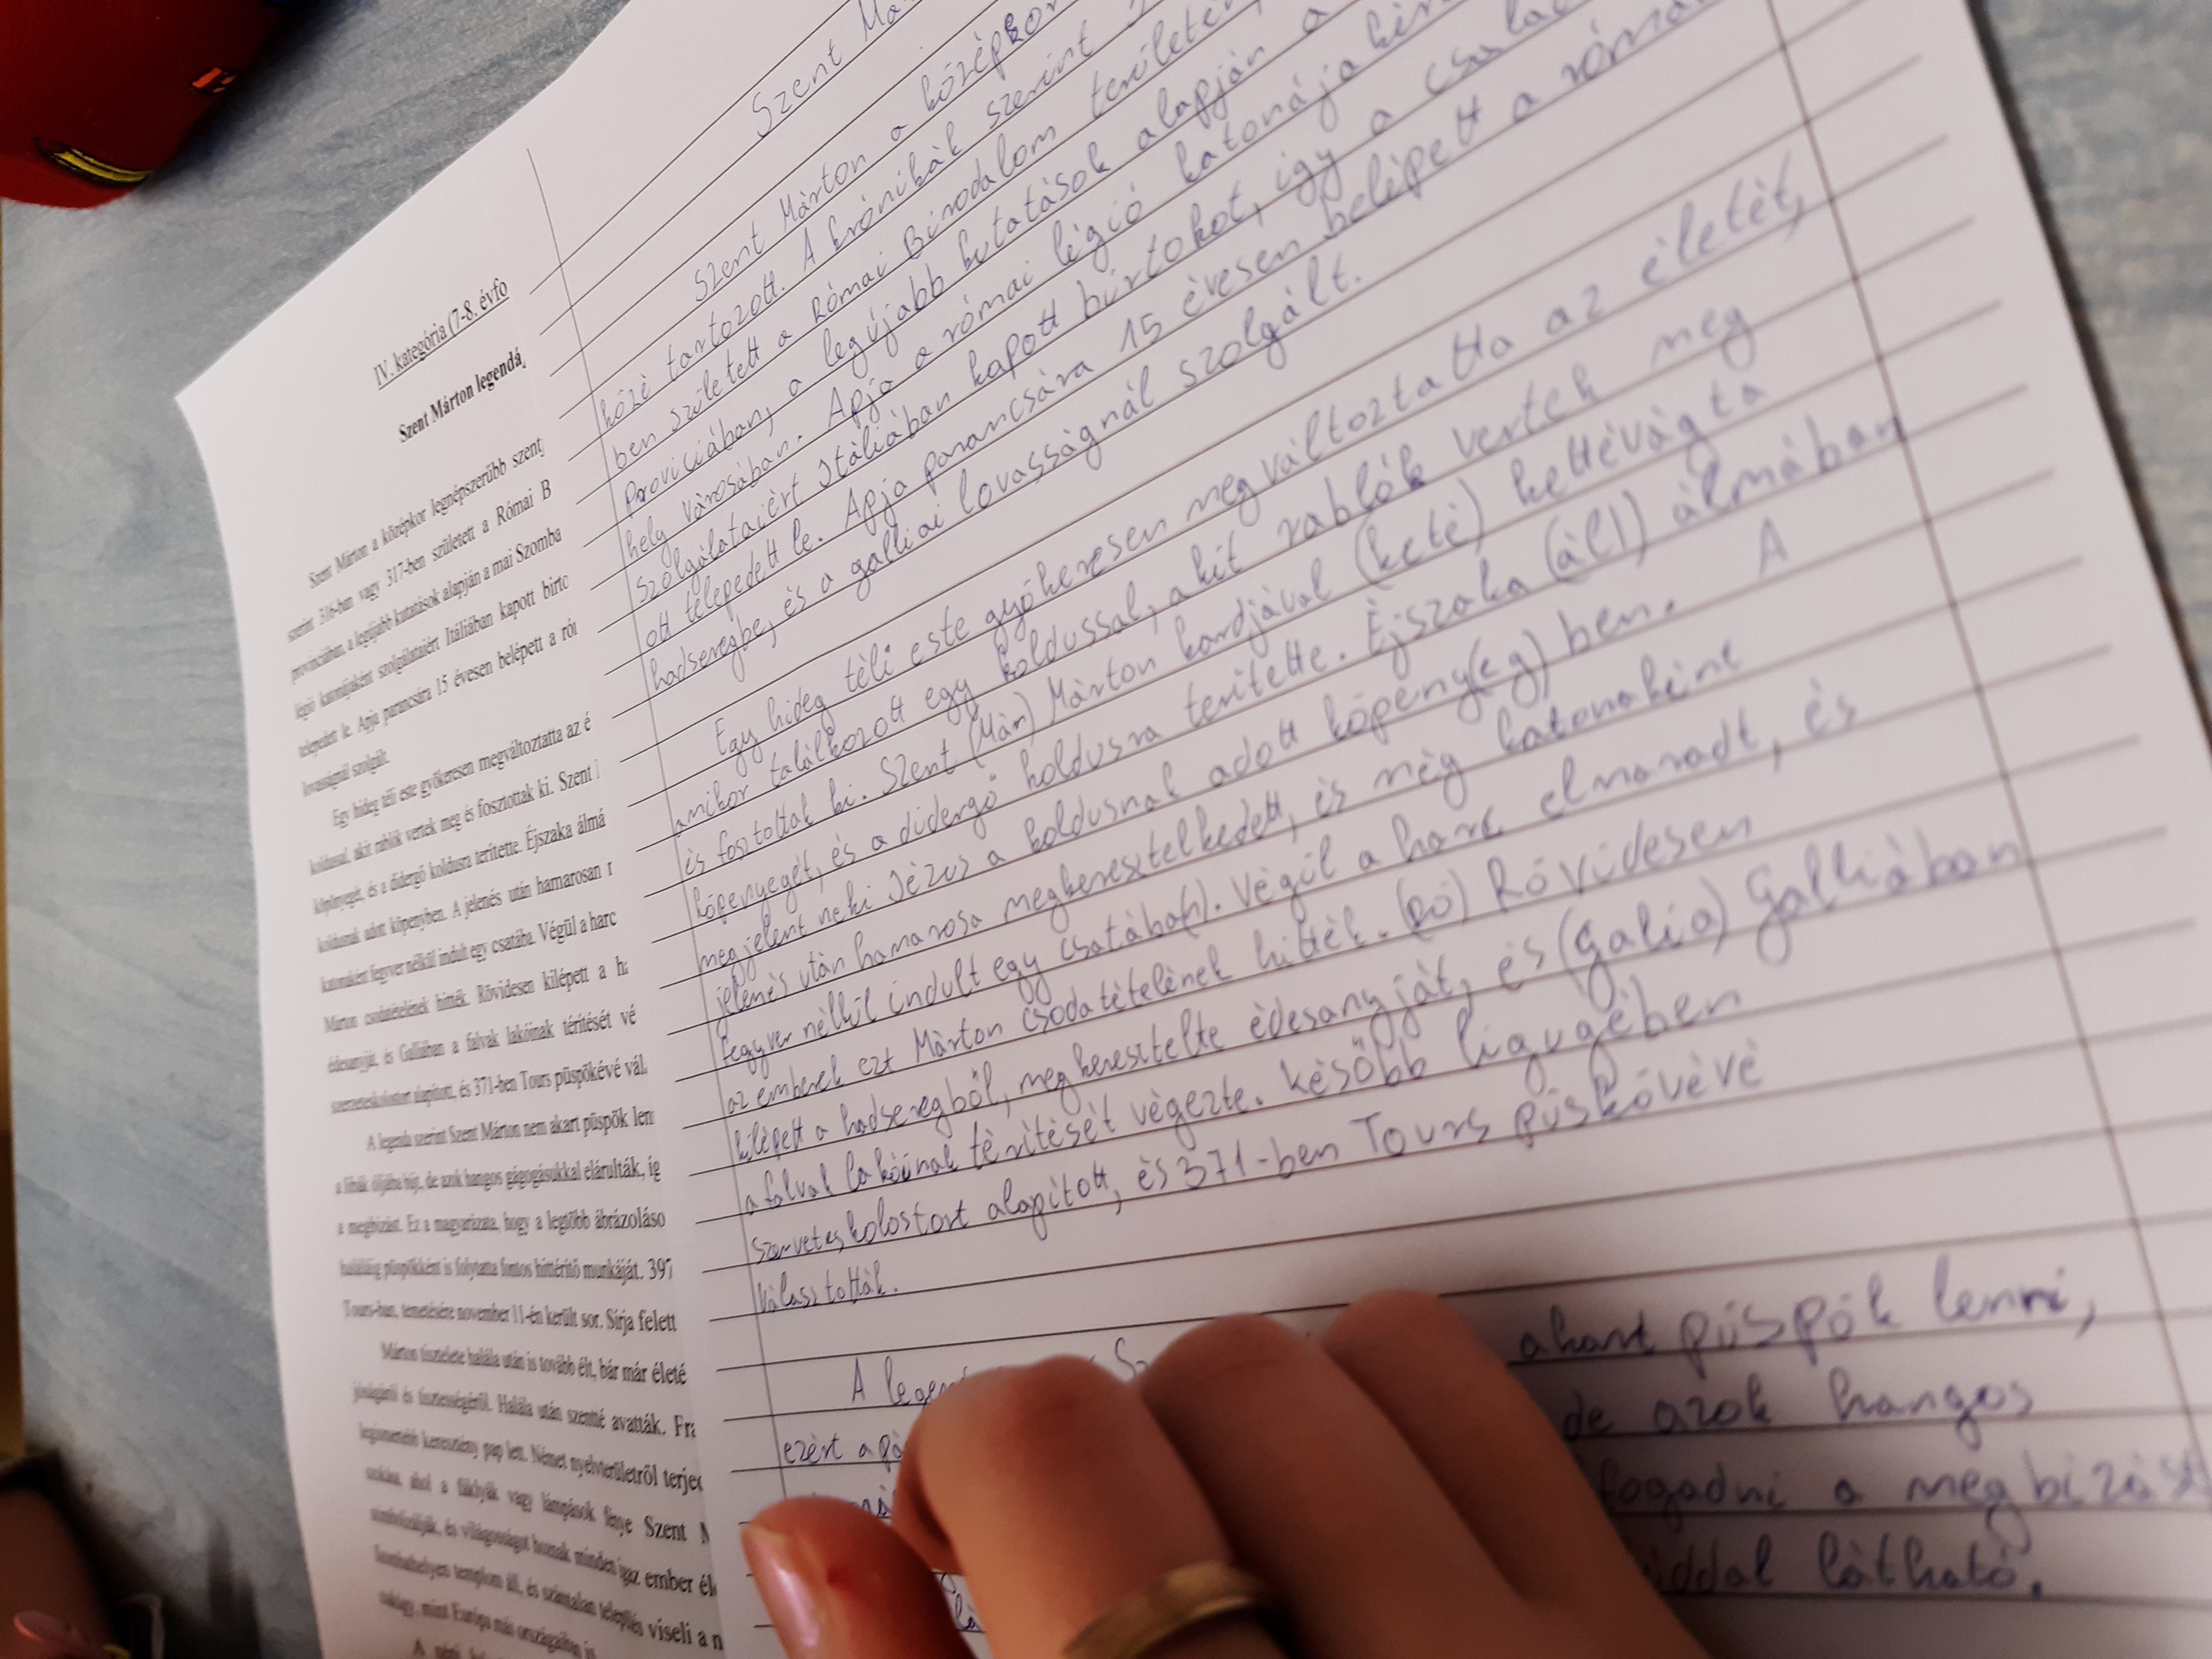 IV. kategória (7-8. évfo
Szent Márton legendáj
Szent Márton a középkor legnépszerűbb szentj
szerint 316-ban vagy 317-ben született a Római B
provinciában, a legújabb kutatások alapján a mai Szomba
légió katonájaként szolgálataiért Itáliában kapott birto
telepedett le. Apja parancsára 15 évesen belépett a ró
lovasságnál szolgált.
Egy hideg téli este gyökeresen megváltoztatta az é
koldussal, akit rablók vertek meg és fosztottak ki. Szent
köpönyegét, és a didergő koldusra terítette. Éjszaka álmá
koldusnak adott köpenyben. A jelenés után hamarosan
katonaként fegyver nélkül indult egy csatába. Végül a harc
Márton csodatételének hitték. Rövidesen kilépett a ha
édesanyját, és Galliában a falvak lakóinak térítését vé
szerzeteskolostort alapított, és 371-ben Tours püspökévé vál
A legenda szerint Szent Márton nem akart püspök len
a libák óljába bújt, de azok hangos gágogásukkal elárulták, íg
a megbízást. Ez a magyarázata, hogy a legtöbb ábrázoláso
haláláig püspökként is folytatta fontos hittérítő munkáját. 397
Tours-ban, temetésére november 11-én került sor. Sírja felett
Márton tisztelete halála után is tovább élt, bár már életé
jóságáról és tisztességéről. Halála után szentté avatták. Fra
legismertebb keresztény pap lett. Német nyelvterületről terjed
szokása, ahol a fáklyák vagy lámpások fénye Szent M
szimbolizálják, és világosságot hoznak minden igaz ember él
Szombathelyen templom áll, és számtalan település viseli a n
csakúgy, mint Európa más országaiban is
Szent Má
Szent Márton a középkor
közé tartozott. A krónikák szerint
ben született a Római Birodalom területén,
Proviciában, a legújabb kutatások alapján a
hely városában. Apja a római légió katonája
szolgálataiért Itáliában kapott birtokot, így a csalá
ott telepedett le. Apja parancsára 15 évesen belépett a római
hadseregbe, és a galliai lovasságnál szolgált.
Egy hideg téli este gyökeresen megváltoztatta az életét,
amikor találkozott egy koldussal, akit rablók vertek meg
és fosztottak ki. Szent (Már) Márton kardjával (keté) kettévágta
köpenyegét, és a didergő koldusra terítette. Éjszaka (áll) álmában
megjelent neki Jézus a koldusnak adott köpeny(eg)ben. A
jelenés után hamarosa megkeresztelkedett, és még katonaként
fegyver nélkül indult egy csatába(n). Végül a harc elmaradt, és
az emberek ezt Márton csodatételének hitték. (Rö) Rövidesen
kilépett a hadseregből, megkeresztelte édesanyját, és (Galia) Galliában
a falvak lakóinak térítését végezte. Később ligugében
szervetes kolostort alapított, és 371-ben Tours püskövévé
választották.
A akart püspök lenni,
ezért de azok hangos
fogadni a megbízást
láddal látható.